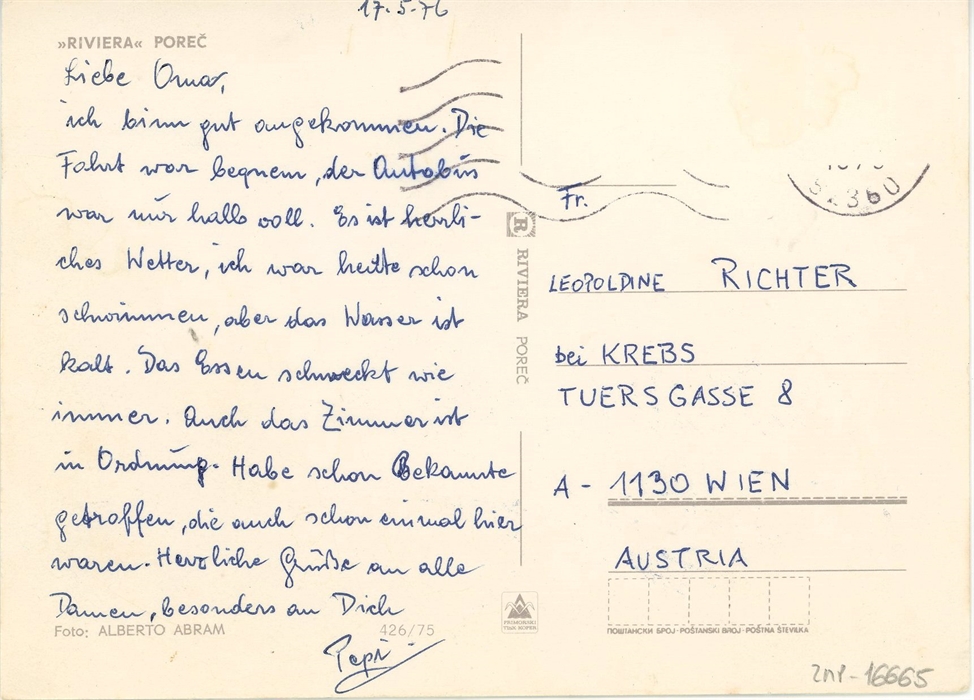 17.5.76
»RIVIERA« POREČ
Liebe Oma,
ich binn gut angekommen. Die
Fahrt war bequem, der Autobus
war nur halb voll. Es ist herrli-
ches Wetter, ich war heute schon
schwimmen, aber das Wasser ist
kalt. Das Essen schmeckt wie
immer. Auch das Zimmer ist
in Ordnung. Habe schon Bekannte
getroffen, die auch schon einmal hier
waren. Herzliche Grüße an alle
Damen, besonders an Dich
Pepi
Foto: ALBERTO ABRAM
426/75
R RIVIERA POREČ
PRIMORSKI TISK KOPER
Fr.
LEOPOLDINE RICHTER
bei KREBS
TUERSGASSE 8
A - 1130 WIEN
AUSTRIA
ПОШТАНСКИ БРОЈ · POŠTANSKI BROJ · POŠTNA ŠTEVILKA
ZMP-16665